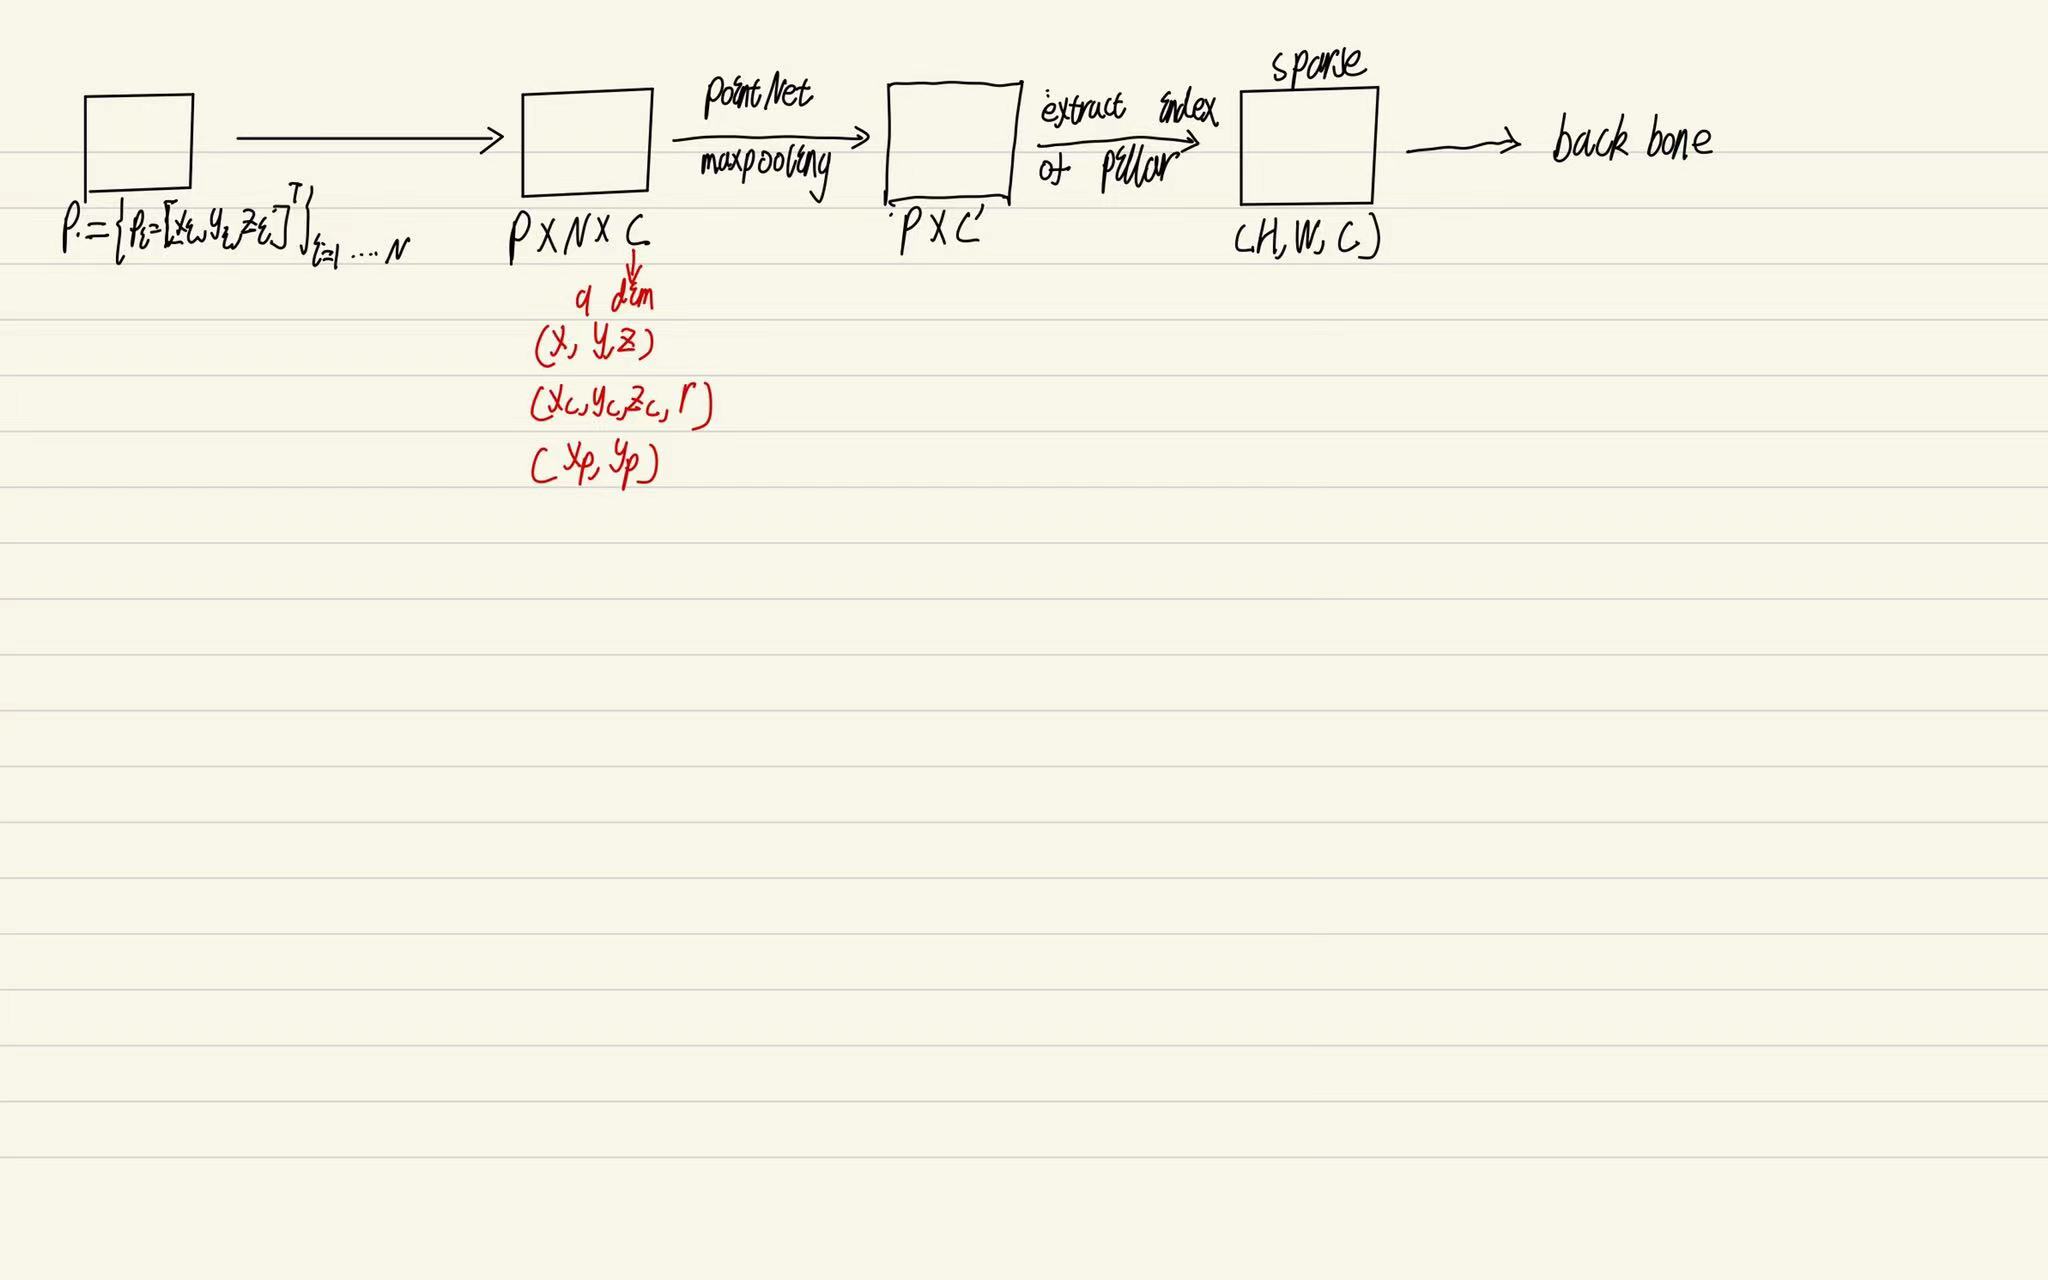 P:={Pi=[xi,yi,zi]^T}i=1....N
P X N X C
9 dim
(x, y, z)
(xc, yc, zc, r)
(xp, yp)
PointNet
maxpooling
P X C'
extract index
of pillar
sparse
(H, W, C)
back bone